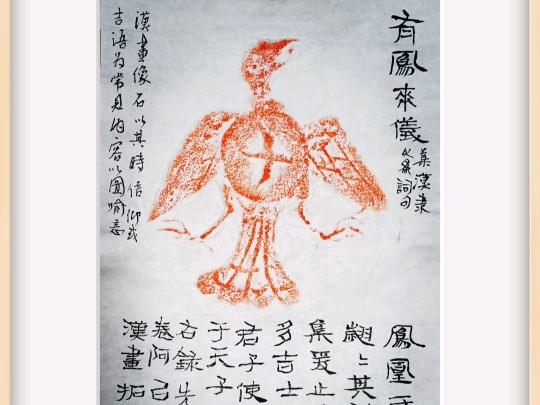 有鳳來儀
集漢隶
詞句
漢畫像石以其時信仰或
吉语为常見内容以圖喻意
鳳凰于
翽〻其
集爰止
多吉士
君子使
于天子
右錄
卷阿
漢畫拓